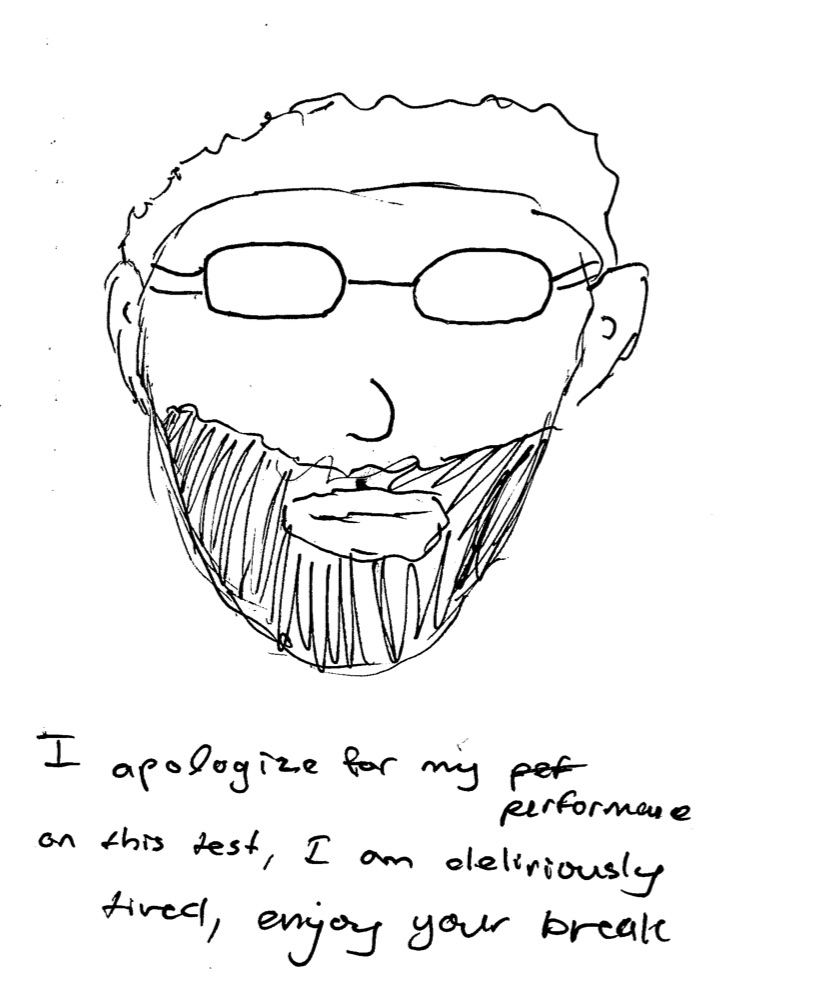 I apologize for my pef
performance
on this test, I am deliriously
tired, enjoy your break